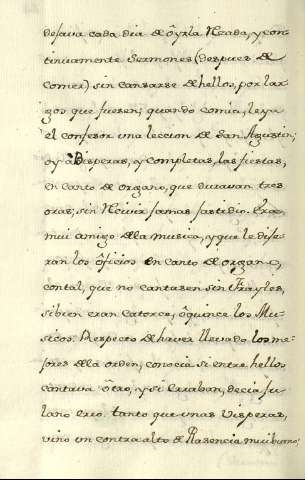 dejava cada dia de óyrla Rezada, y conti-
tinuamente Sermones (despues de
comer) sin cansarse de hellos, por lar-
gos que fuesen; quando comia, leya
el confesor una leccion de San Agustin;
oya Visperas, y completas, las fiestas,
en canto de organo, que duravan tres
oras; sin Recivir jamas fastidio. Era
mui amigo de la musica, y que le dije-
ran los óficios en canto de organo,
contal, que no cantasen sin Frayles,
si bien eran catorce, ó quince los Mu-
sicos. Respecto de haver llevado los me-
jores de la orden, conocia si entre hellos
cantava ótro, y si erraban, decia fu-
lano erró. tanto que unas Visperas,
vino un contra alto de Plasencia mui bueno;